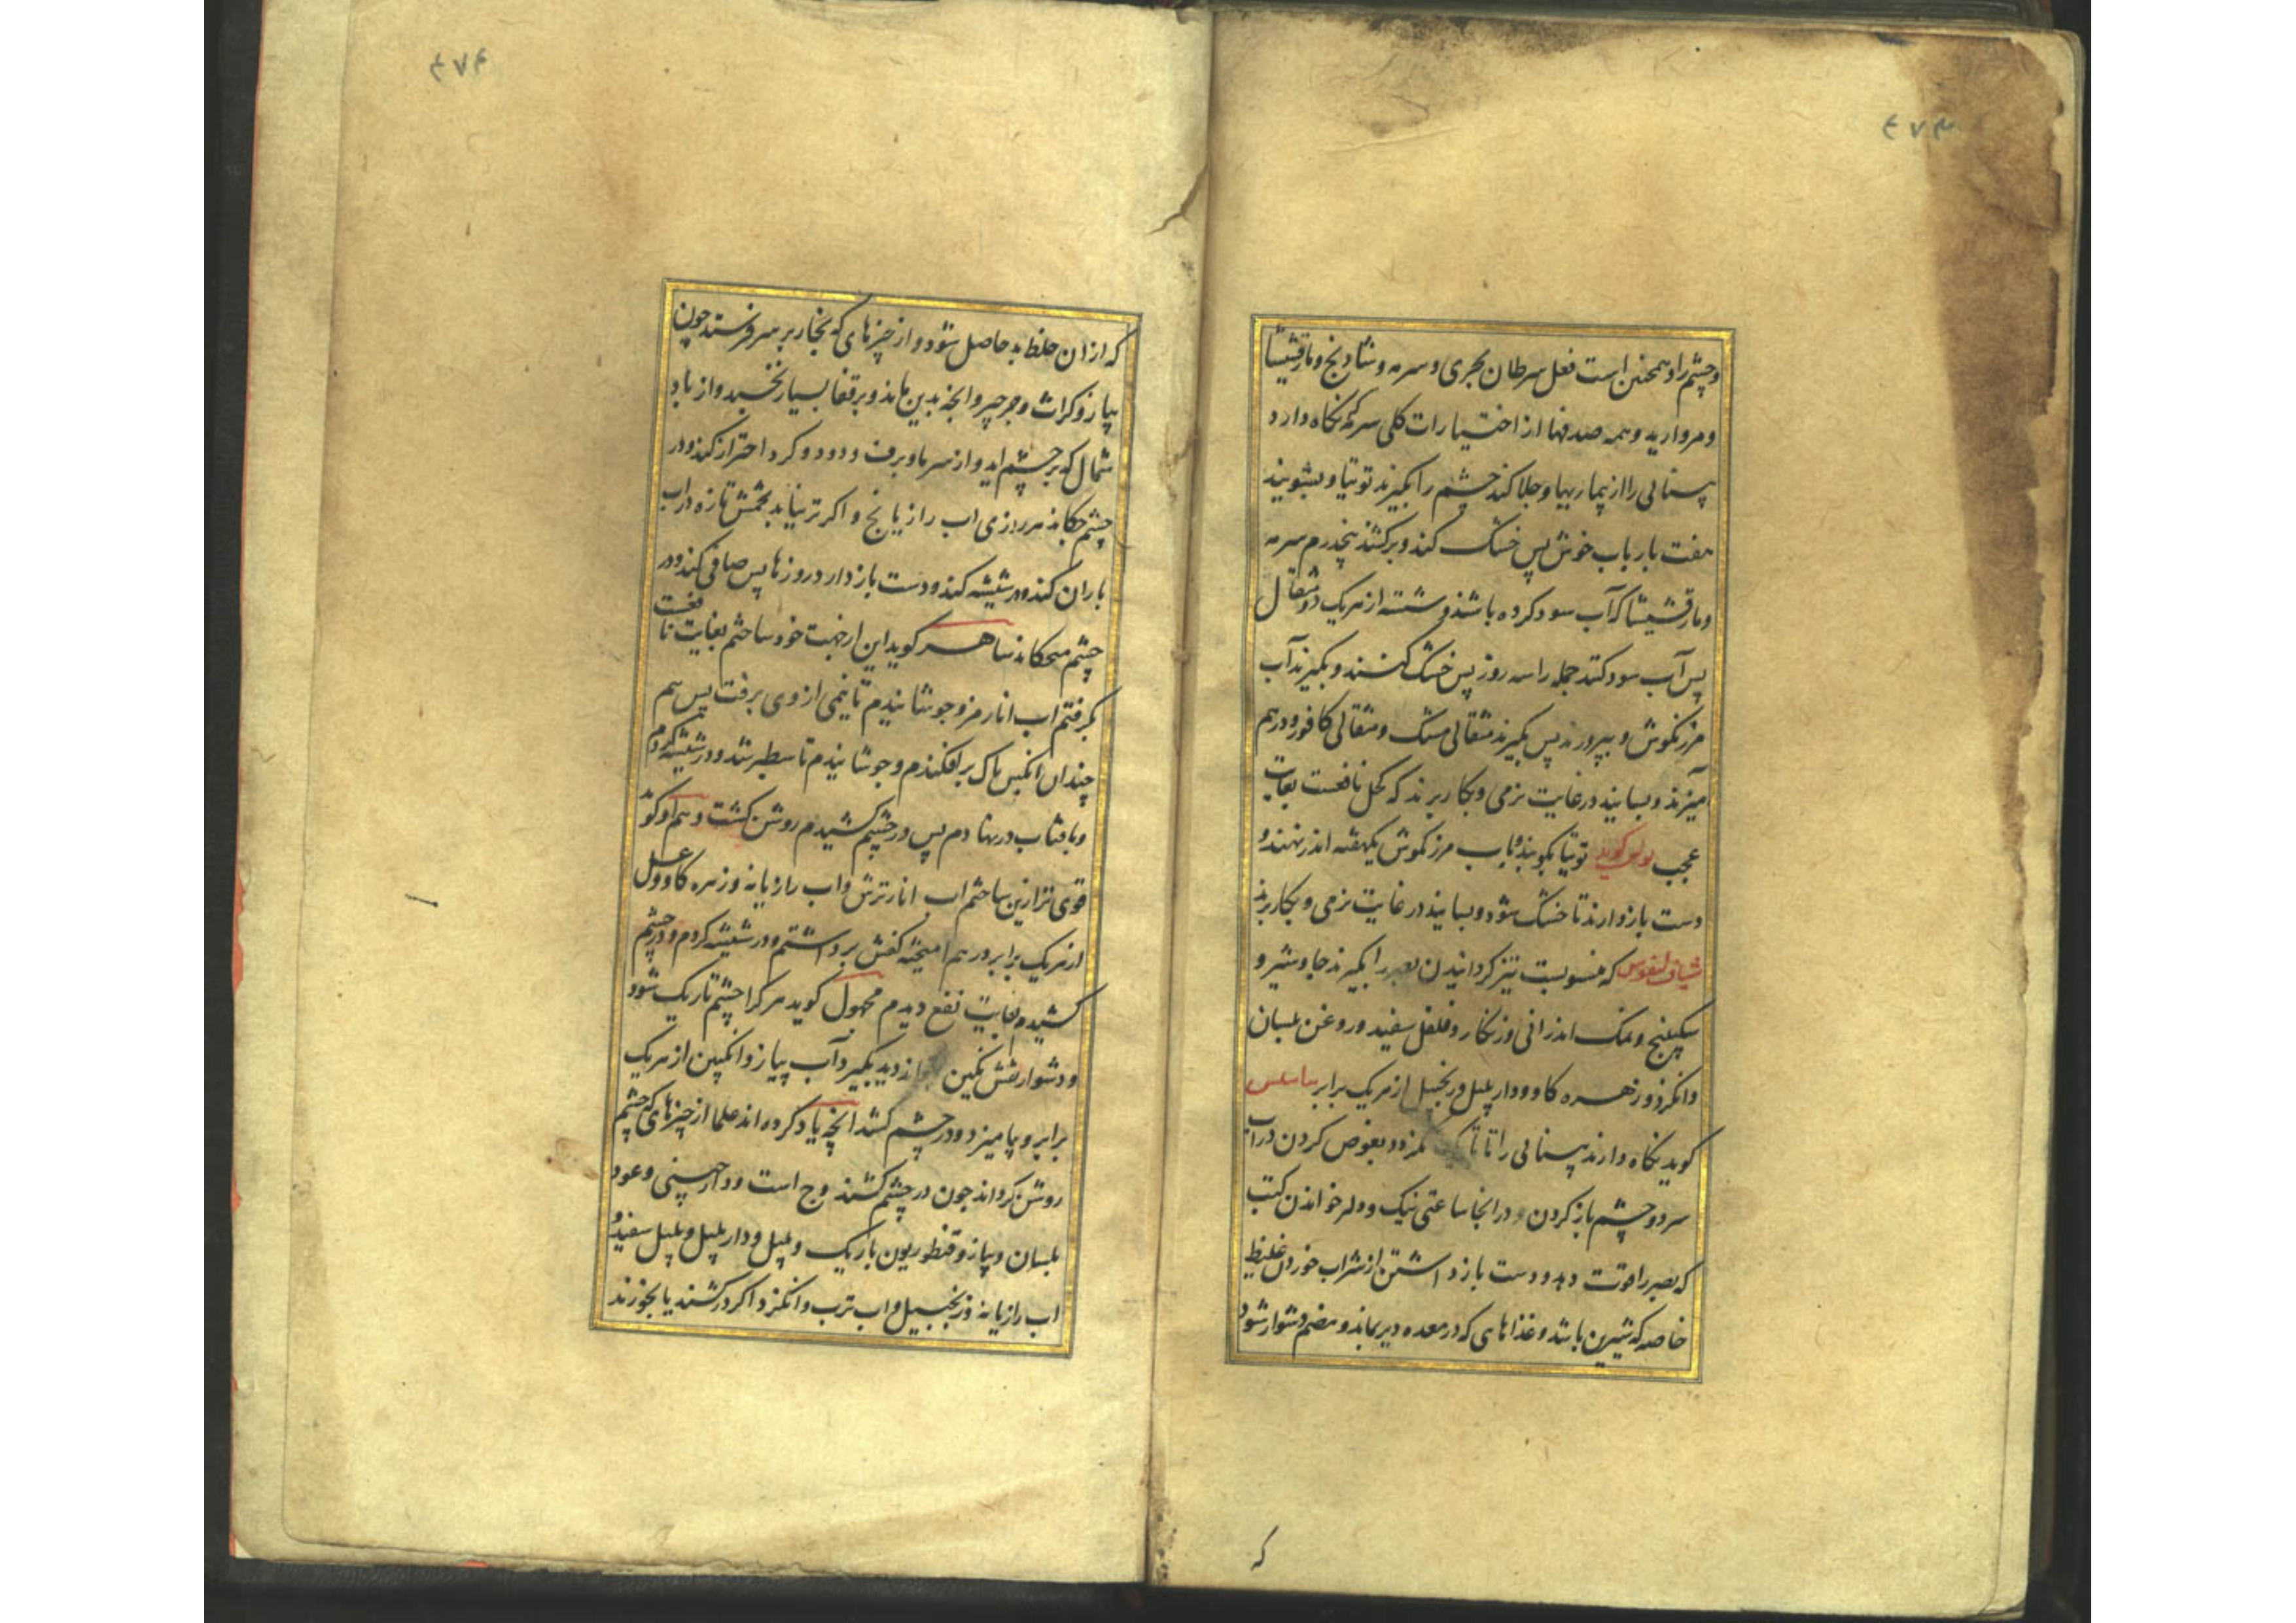 ۴۷۳
و چشم را و همچنین است فعل سرطان بحری و سرمه و شادنج و مارقشیشا
و مروارید و همه صدفها از اختیارات کلی سرمه که نکاه دارد
بینائی را از بیماریها و جلا کند چشم را بکیرند توتیا و بشویند
هفت بار باب خوش پس خشک کنند و برکشند پنجدرم سرمه
و مارقشیشا که آب سود کرده باشند و شسته از هریک دو مثقال
پس آب سود کنند جمله را سه روز پس خشک کنند و بکیرند آب
مرزنکوش و بپرورند پس بکیرند مثقالی مشک و مثقالی کافور و درهم
آمیزند و بسایند در غایت نرمی و بکار برند که کحل نافعست بغایت
عجب بولس کوید توتیا بکوبند و باب مرزنکوش یکهفته اندر نهند و
دست باز دارند تا خشک شود و بسایند در غایت نرمی و بکار برند
شیاف که منسوبست تیز کردانیدن بصر را بکیرند جاوشیر و
سکبینج و نمک اندرانی و زنکار و فلفل سفید و روغن بلسان
و انکزد و زهره کاو و دار پلپل و زنجبیل از هریک برابر
کوید نکاه دارند بینائی را تا و بغوص کردن در آب
سرد و چشم باز کردن و در انجا ساعتی نیک و دلر خواندن کتب
که بصر را قوت دهد و دست باز داشتن از شراب خوردن غلیظ
خاصه که شیرین باشد و غذاهای که در معده دیر بماند و هضم دشوار شود
که
۴۷۴
که از ان خلط بد حاصل شود و از چیزهای که بخار بر سر فرستد چون
پیاز و کراث و جرجیر و انجه بدین ماند و بر قفا بسیار نخسبد و از باد
شمال که بر چشم اید و از سرما و برف و دود و کرد احتراز کند و در
چشم چکاند هر روزی اب رازیانج و اکر تر نیابد تخمش تازه در اب
باران کند و در شیشه کند و دست باز دارد روزها پس صافی کند و در
چشم میچکاند ساهر کوید این ارجهت خود ساختم بغایت نافعست
بکرفتم اب انار مز و جوشانیدم تا نیمی از وی برفت پس هم
چندان انکبین پاک برافکندم و جوشانیدم تا سطبر شد و در شیشه کردم
و بافتاب در نهادم پس در چشم کشیدم روشن کشت و هم او کوید
قوی تر ازین ساختم اب انار ترش و اب رازیانه و زهره کاو و عسل
از هریک برابر درهم امیخته کفش برداشتم و در شیشه کردم و در چشم
کشیدم بغایت نفع دیدم مجهول کوید هر کرا چشم تاریک شود
و دشوار نقش نکین باز دید بکیرد آب پیاز و انکبین از هریک
برابر و بیامیزد و در چشم کشد انچه یاد کرده اند علما از چیزهای که چشم
روشن کرداند چون در چشم کشند وج است و دارچینی و عود
بلسان و پیاز و قنطوریون باریک و پلپل و دار پلپل و پلپل سفید و
اب رازیانه و زنجبیل و اب ترب و انکزد اکر درکشند یا بخورند